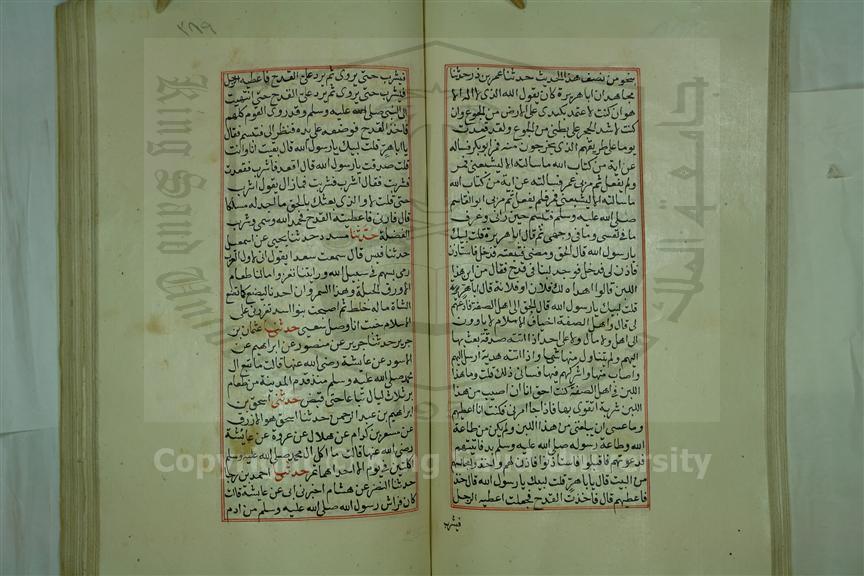 بنحو من نصف هذا الحديث حدثنا عمر بن ذر حدثنا
مجاهد ان ابا هريرة كان يقول الله الذي لا اله الا
هو ان كنت لاعتمد بكبدي على الارض من الجوع وان
كنت لاشد الحجر على بطني من الجوع ولقد قعدت
يوما على طريقهم الذي يخرجون منه فمر ابو بكر فسألته
عن اية من كتاب الله ما سالته الا ليشبعني فمر
ولم يفعل ثم مر بي عمر فسالته عن اية من كتاب الله
ما سالته الا ليشبعني فمر فلم يفعل ثم مر بي ابو القاسم
صلى الله عليه وسلم فتبسم حين راني وعرف
ما في نفسي وما في وجهي ثم قال ابا هر قلت لبيك
يا رسول الله قال الحق ومضى فتبعته فدخل فاستاذن
فاذن لي فدخل فوجد لبنا في قدح فقال من اين هذا
اللبن قالوا اهداه لك فلان او فلانة قال ابا هر
قلت لبيك يا رسول الله قال الحق الى اهل الصفة فادعهم
لي قال واهل الصفة اضياف الاسلام لا ياوون
الى اهل ولا مال ولا على احد اذا اتته صدقة بعث بها
اليهم ولم يتناول منها شيئا واذا اتته هدية ارسل اليهم
واصاب منها واشركهم فيها فساني ذلك فقلت وما هذا
اللبن في اهل الصفة كنت احق انا ان اصيب من هذا
اللبن شربة اتقوى بها فاذا جا امرني فكنت انا اعطيهم
وما عسى ان يبلغني من هذا اللبن ولم يكن من طاعة
الله وطاعة رسوله صلى الله عليه وسلم بد فاتيتهم
فدعوتهم فاقبلوا فاستاذنوا فاذن لهم واخذوا مجالسهم
من البيت قال يا ابا هر قلت لبيك يا رسول الله قال خذ
فاعطهم قال فاخذت القدح فجعلت اعطيه الرجل
فيشرب
٣٨٩
فيشرب حتى يروى ثم يرد علي القدح فاعطيه الرجل
فيشرب حتى يروى ثم يرد علي القدح حتى انتهيت
الى النبي صلى الله عليه وسلم وقد روي القوم كلهم
فاخذ القدح فوضعه على يده فنظر الي فتبسم فقال
يا ابا هر قلت لبيك يا رسول الله قال بقيت انا وانت
قلت صدقت يا رسول الله قال اقعد فاشرب فقعدت
فشربت فقال اشرب فشربت فما زال يقول اشرب
حتى قلت لا والذي بعثك بالحق ما اجد له مسلكا
قال فارني فاعطيته القدح فحمد الله وسمى وشرب
الفضلة حدثنا مسدد حدثنا يحيى عن اسمعيل
حدثنا قيس قال سمعت سعدا يقول اني لاول العرب
رمى بسهم في سبيل الله ورايتنا نغزو وما لنا طعام
الا ورق الحبلة وهذا السمر وان احدنا ليضع كما تضع
الشاة ما له خلط ثم اصبحت بنو اسد تعزرني على
الاسلام خبت اذا وضل سعيي حدثني عثمان بن
جرير حدثنا جرير عن منصور عن ابراهيم عن
الاسود عن عايشة رضي الله عنها قالت ما شبع ال
محمد صلى الله عليه وسلم منذ قدم المدينة من طعام
بر ثلاث ليال تباعا حتى قبض حدثني اسحق بن
ابراهيم بن عبد الرحمن حدثنا اسحق هو الازرق
عن مسعر بن كدام عن هلال عن عروة عن عايشة
رضي الله عنها قالت ما اكل ال محمد صلى الله عليه وسلم
اكلتين في يوم الا احداهما تمر حدثني احمد بن رجا
حدثنا النضر عن هشام اخبرني ابي عن عايشة قالت
كان فراش رسول الله صلى الله عليه وسلم من ادم
King Saud University
جامعة الملك
Copyright © King Saud University